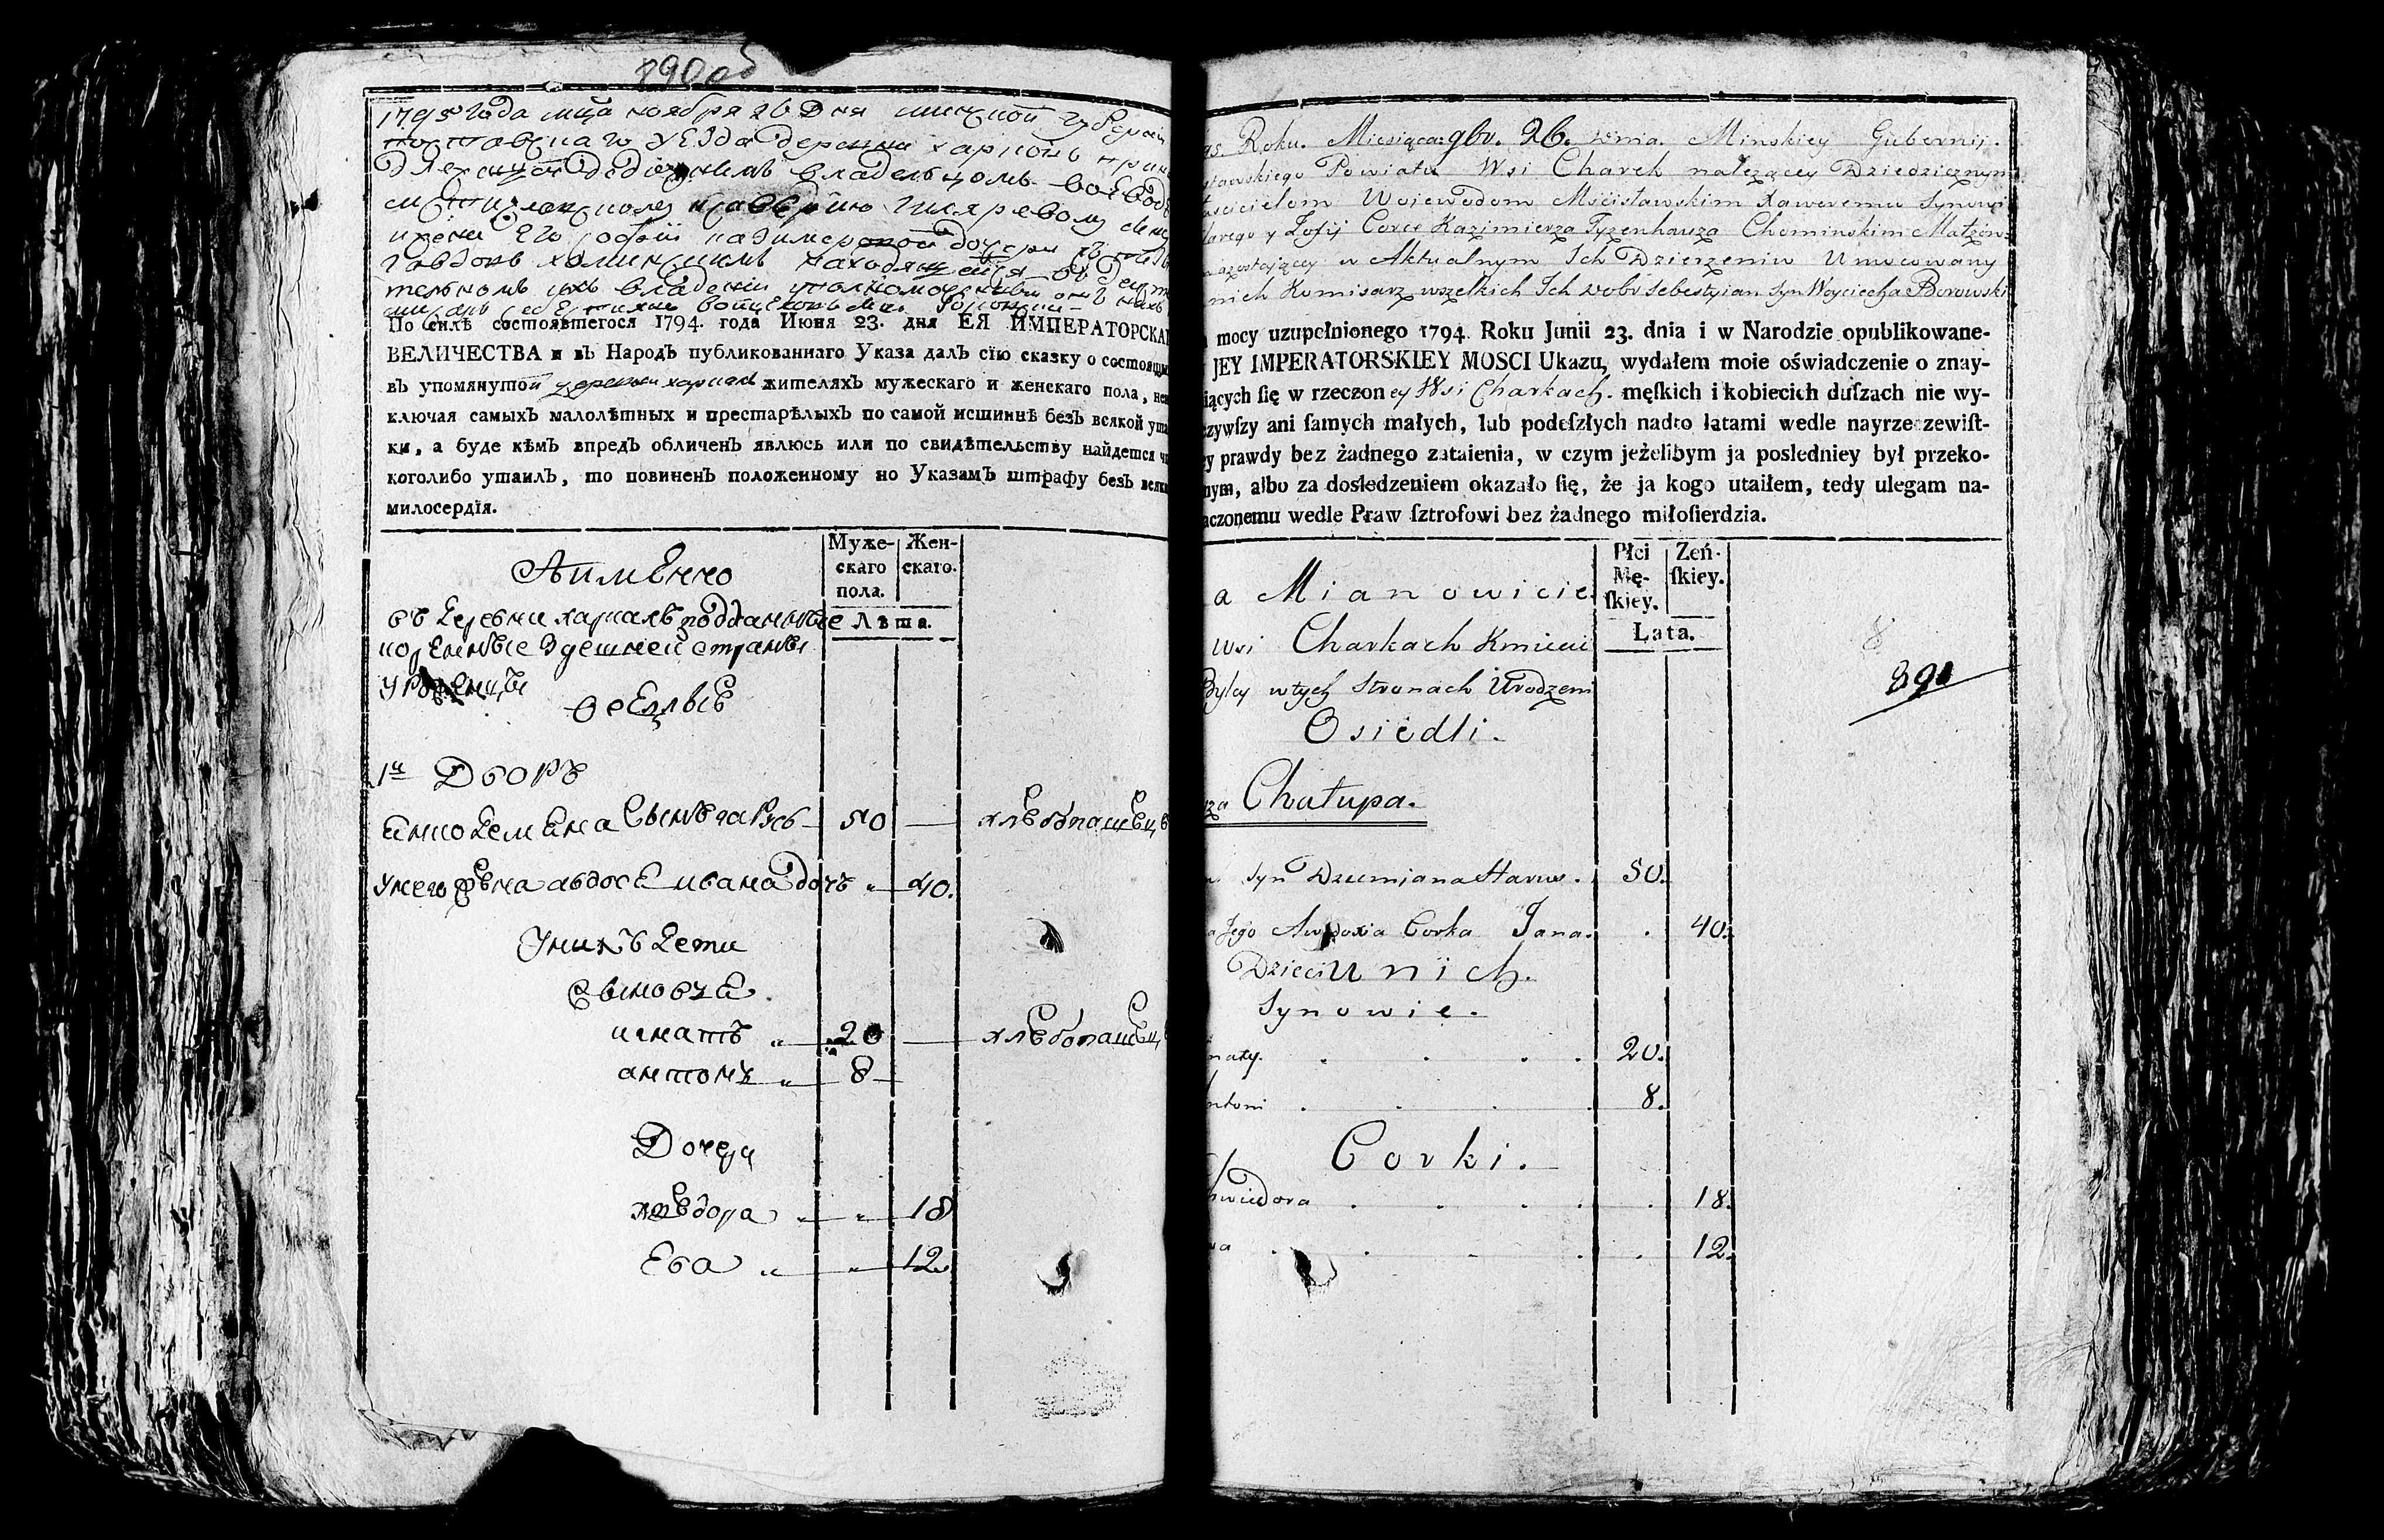 890 об
1795 года мца ноября 26 дня минской губернии
поставскаго уезда деревни харкахъ
дедичнымъ владельцомъ воеводамъ
ксаверию
его софии казимеровой дочери
хоминскимъ находящейся въ
ихъ владении уполномоченный отъ нихъ
По силѣ состоявшегося 1794. года Июня 23. дня ЕЯ ИМПЕРАТОРСКАГ
ВЕЛИЧЕСТВА и въ Народѣ публикованнаго Указа далъ сїю сказку о состоящи
въ упомянутой деревни харкахъ жителяхъ мужескаго и женскаго пола, не
ключая самыхъ малолѣтныхъ и престарѣлыхъ по самой истиннѣ безъ всякой ута
ки, а буде кѣмъ впредъ обличенъ явлюсь или по свидѣтельству найдется чт
коголибо утаилъ, то повиненъ положенному по Указамъ штрафу безъ всяк
милосердїя.
Муже-
скаго
пола.
Жен-
скаго.
Лѣта.
Аименно
въ деревни харкахъ подданные
коренные здешней страны
уроженцы
оседлые
1й Дворъ
Демяна сынъ 50 хлебопашецъ
у него жена авдося ивана дочь „ 40.
У нихъ дети
Сыновья
игнатъ „ 20 хлебопашец
антонъ „ 8
Дочери
хведора „ „ 18
Ева „ „ 12
95 Roku. Miesiąca 9br. 26. dnia. Minskiey Gubernij.
stawskiego Powiatu Wsi Charek należącey Dziedzicznym
aścicielom Wojewodom Mścisławskim Xaweremu Synowi
larego y Zofij Corce Kazimierza Tyzenhauza Chominskim Małżon-
w Aktualnym Ich Dzierżeniu Umocowany
nich Komisarz wszelkich Ich dobr Sebestyian Syn Woyciecha Borowski
mocy uzupełnionego 1794. Roku Junii 23. dnia i w Narodzie opublikowane-
JEY IMPERATORSKIEY MOSCI Ukazu, wydałem moie oświadczenie o znay-
iących ſię w rzeczoney Wsi Charkach. męſkich i kobiecich duſzach nie wy-
zywſzy ani ſamych małych, lub podeſzłych nadto latami wedle nayrzeczewiſt-
y prawdy bez żadnego zataienia, w czym jeżelibym ja posledniey był przeko-
nym, albo za dosledzeniem okazało ſię, że ja kogo utaiłem, tedy ulegam na-
aczonemu wedle Praw ſztrofowi bez żadnego miłoſierdzia.
Płci
Mę-
ſkiey.
Zeń-
ſkiey.
Lata.
a Mianowicie
wsi Charkach Kmieci
Bylcy w tych Stronach Urodzeni
Osiedli.
891
sza Chałupa.
Syn Dziemiana Harus. 50.
a Jego Awdoxia Corka Jana. . 40.
Dzieci u nich.
Synowie.
naty. 20.
ntoni 8.
Corki.
hwiedora 18.
wa 12.